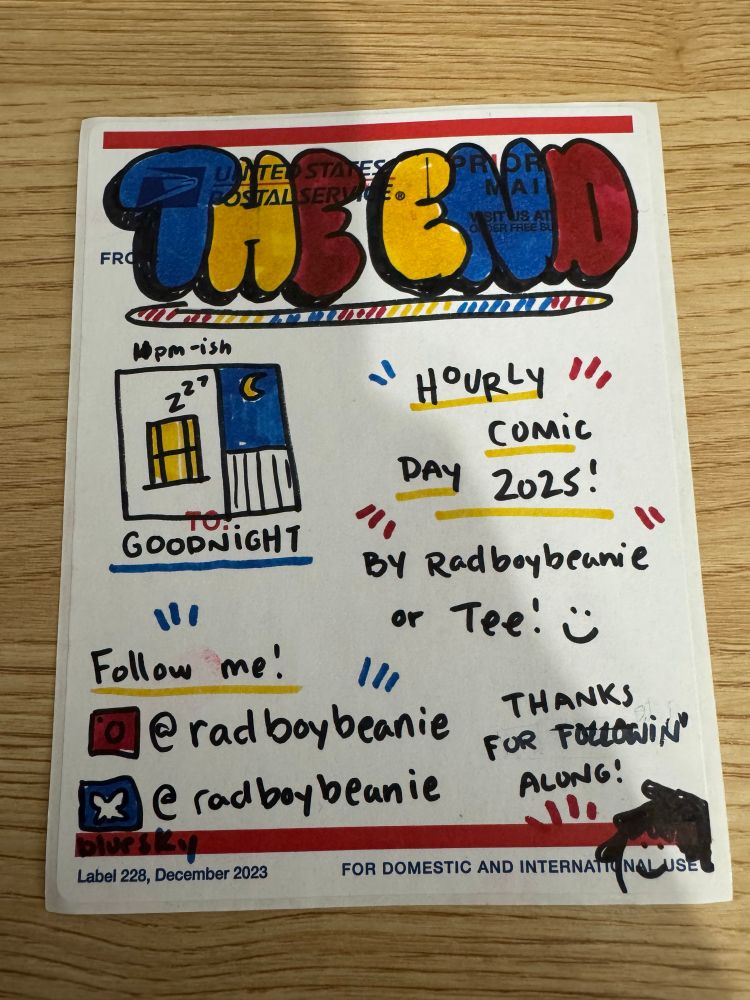 THE END
UNITED STATES
POSTAL SERVICE®
PRIOR
MAI
VISIT US AT
ORDER FREE SU
FRO
10pm-ish
zzz
TO:
GOODNIGHT
HOURLY
COMIC
DAY 2025!
BY Radboybeanie
or Tee!
Follow me!
@radboybeanie
@radboybeanie
bluesky
THANKS
FOR FOLLOWIN'
ALONG!
Label 228, December 2023
FOR DOMESTIC AND INTERNATIONAL USE